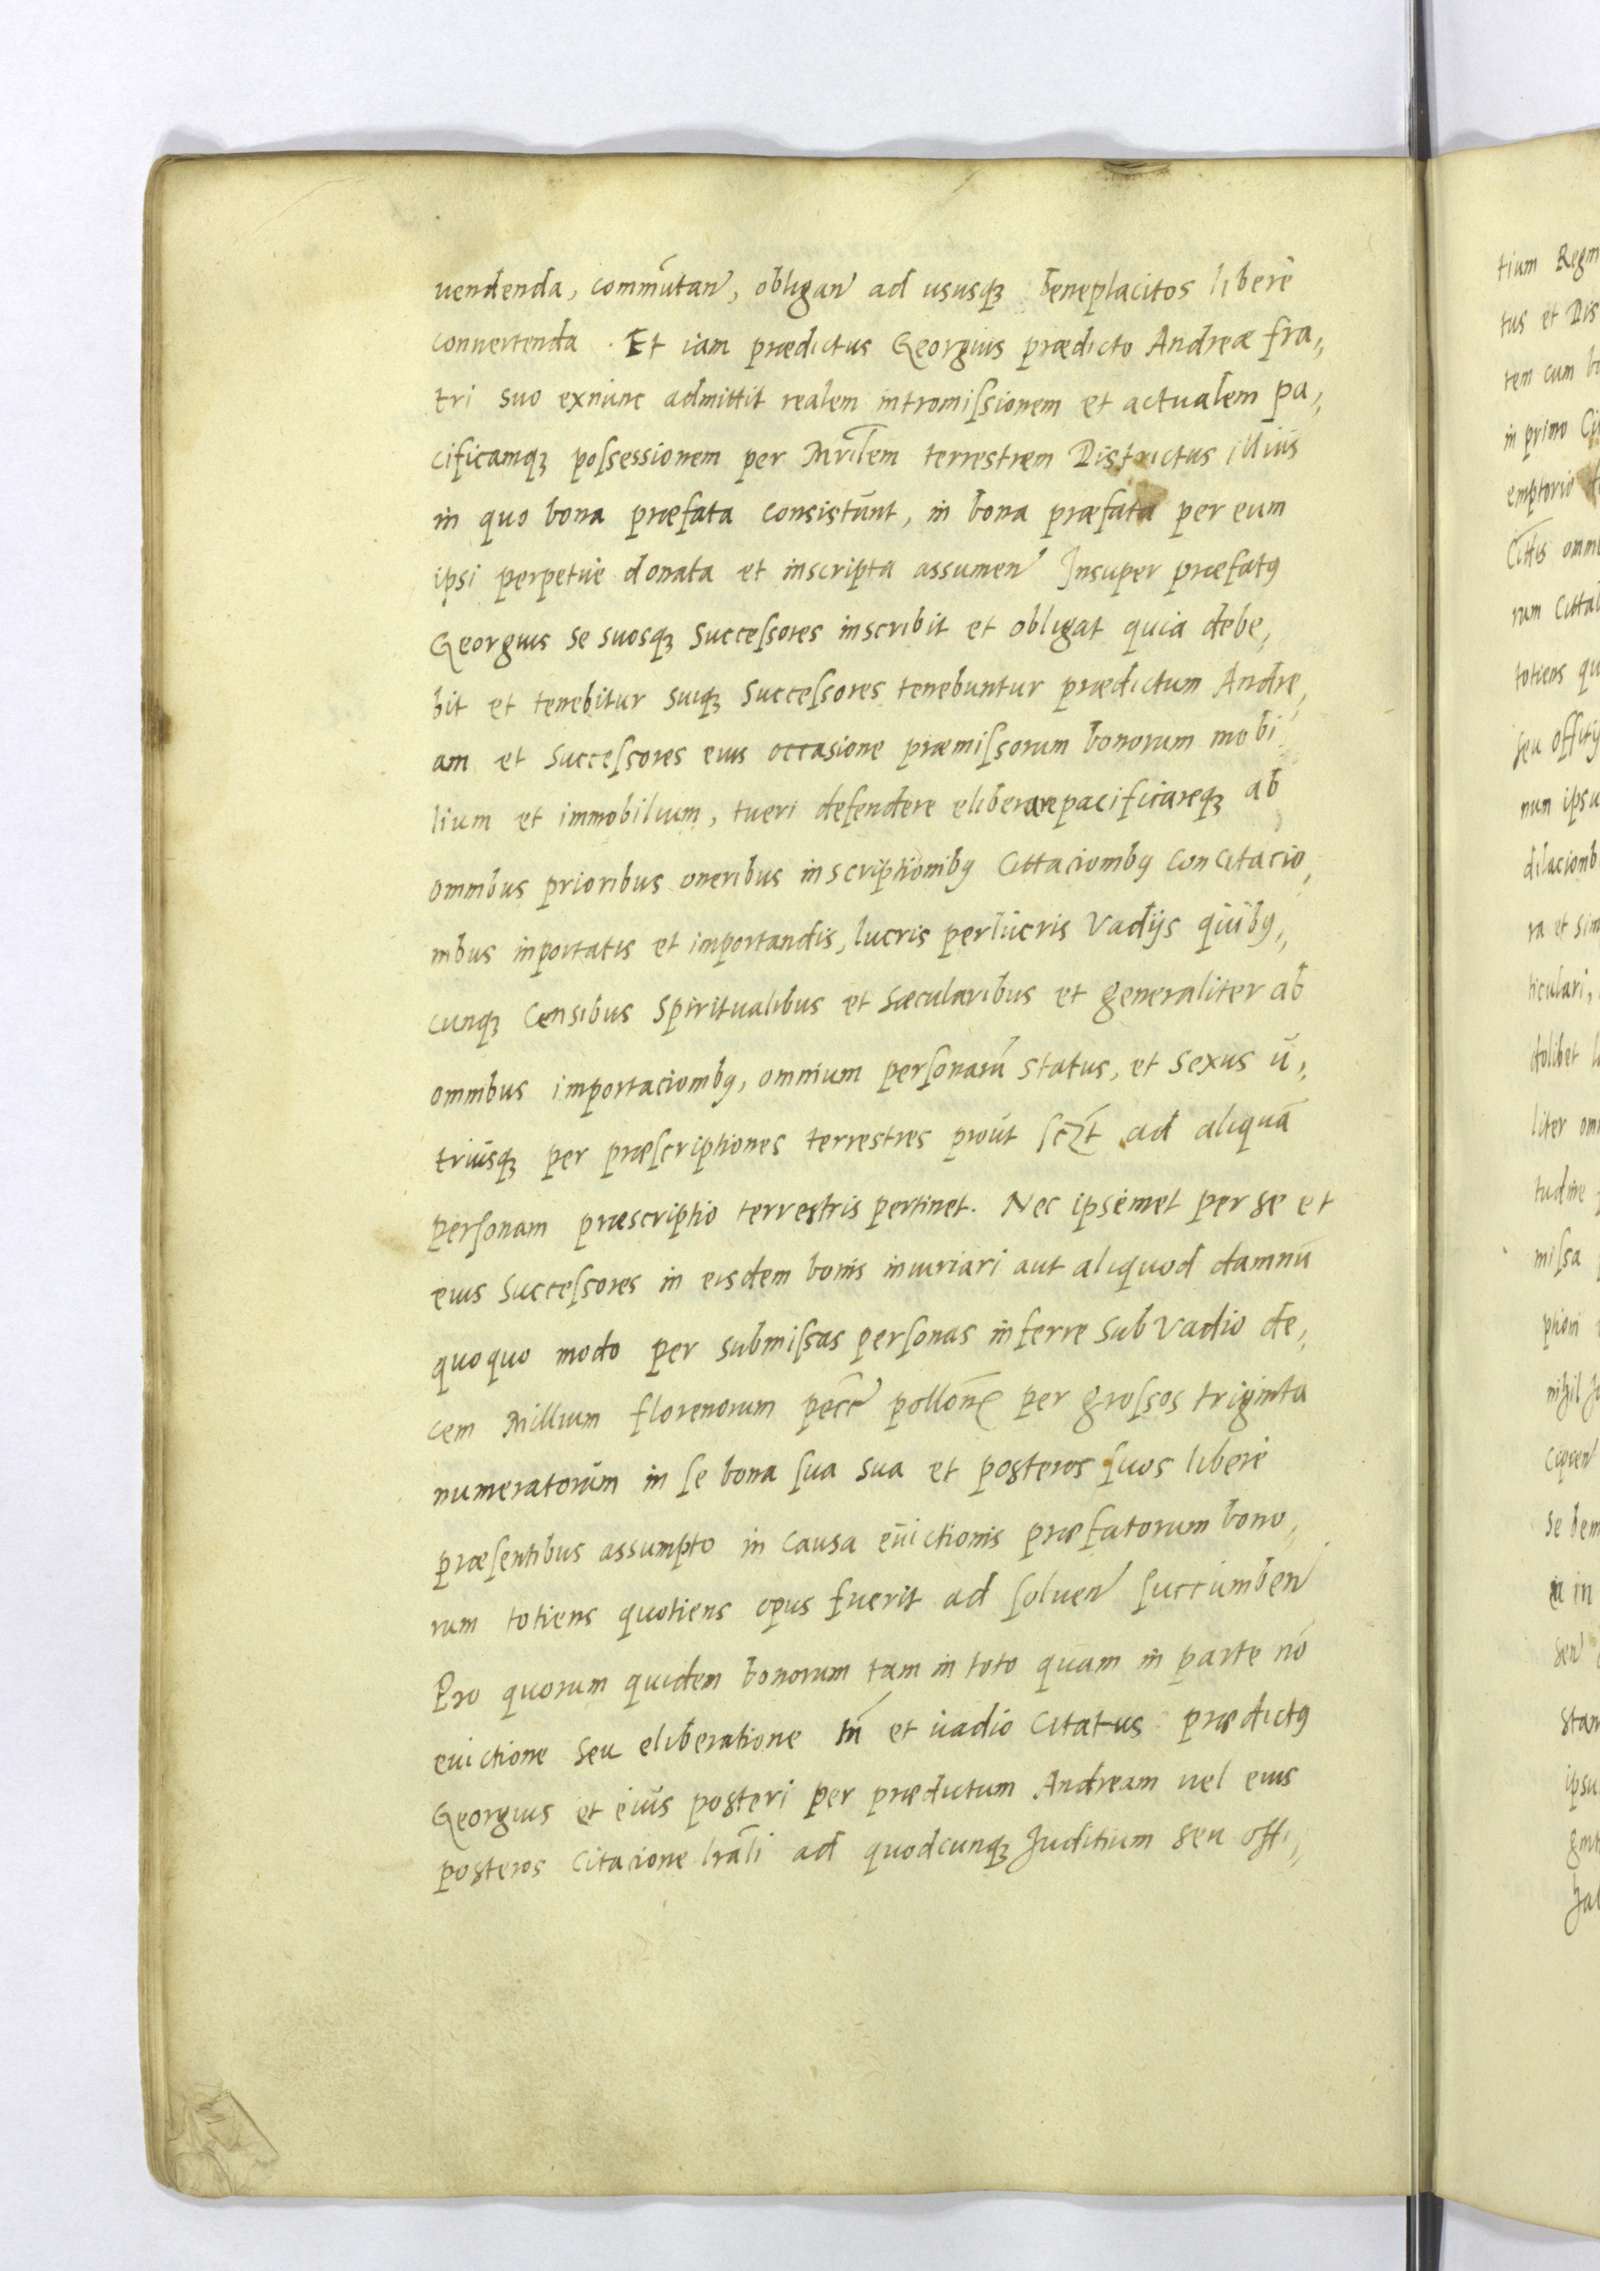 uendenda, com̃utan̄, obligan̄ ad ususqꝫ beneplacitos liberè
conuertenda. Et iam prædictus Georgius prædicto Andreæ fra,,
tri suo exnunc admittit realem intromiſsionem et actualem pa,,
cificamqꝫ poſsessionem per Mrĩlem terrestrem Districtus illius
in quo bona præfata consistunt, in bona præfata per eum
ipsi perpetue donata et inscripta assumen̄ Insuper præfatꝰ
Georgius se suosqꝫ Succeſsores inscribit et obligat quia debe,,
bit et tenebitur suiqꝫ Succeſsores tenebuntur prædictum Andre,,
am et Succeſsores eius occasione præmiſsorum bonorum mobi
lium et immobilium, tueri defendere eliberare pacificareqꝫ ab
omnibus prioribus oneribus inscriptionibꝰ Cittacionibꝰ Concitacio,,
nibus inportatis et importandis, lucris perlucris Vadijs quibꝰ,,
cunqꝫ Censibus Spiritualibus et Sæcularibus et generaliter ab
omnibus importacionibꝰ, omnium perſonarū status, et Sexus u,,
triusqꝫ per præſcriptiones terrestres prout ad aliquā
perſonam præscriptio terrestris pertinet. Nec ipsemet per se et
eius Succeſsores in eisdem bonis iniuriari aut aliquod damnū
quoquo modo per submiſsas perſonas inferre sub Vadio de,,
cem Millium florenorum pecc̄ per groſsos triginta
numeratorum in ſe bona ſua sua et posteros ſuos liberè
præſentibus assumpto in causa euictionis præfatorum bono,,
rum totiens quotiens opus fuerit ad ſoluen̄ ſuccumben̄
Pro quorum quidem bonorum tam in toto quam in parte nō
euictione seu eliberatione et uadio Citatus prædictꝰ
Georgius et eius posteri per prædictum Andream uel eius
posteros citacione lrãli ad quodcunqꝫ Juditium seu offi,,
tium Regni
tus et Dis
tem cum bo
in primo Ci
emptorio
omni
rum Citta
totiens qu
seu offitij
num ipsu
dilacionb
ra et sim
ticulari,
dolibet
liter omn
tudine
miſsa
nihil
se
in
sen̄
stan
ipsu